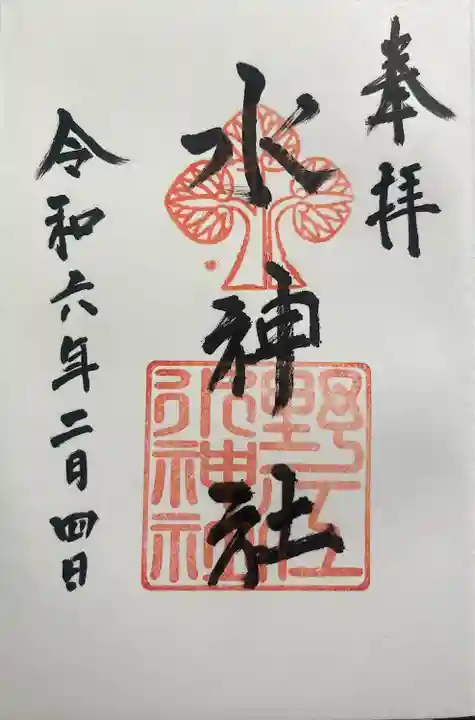 奉拝
水神社
野江水神社
令和六年二月四日